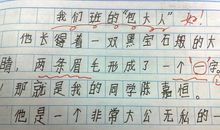 我们班的“包大人”
他长得着一双黑宝石般的大
睛,两条眉毛形成了一个“一”字。
那就是我的同学陈嘉恒。
他是一个非常大公无私的